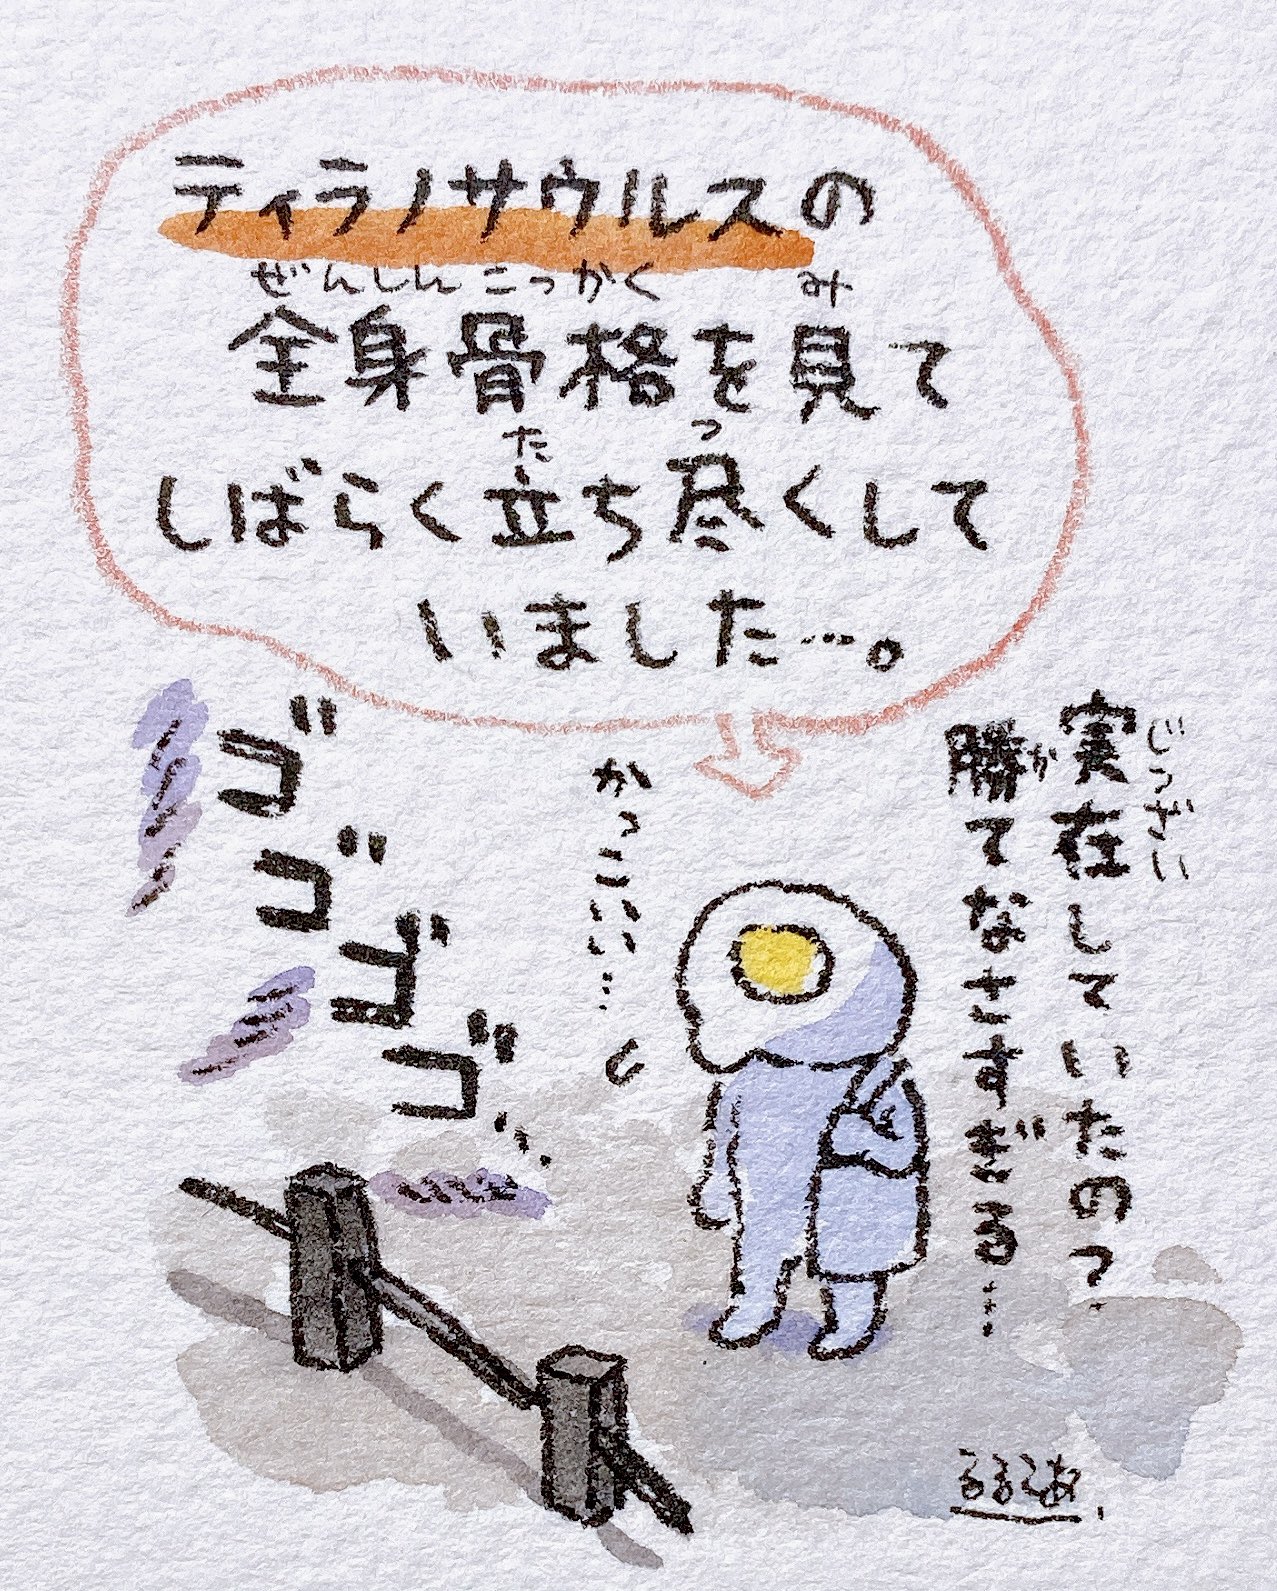 ティラノサウルスの
ぜんしんこっかく み
全身骨格を見て
た つ
しばらく立ち尽くして
いました…。
じつざい
実在していたの?
か
勝てなさすぎる……
かっこいい…
ゴゴゴゴ…